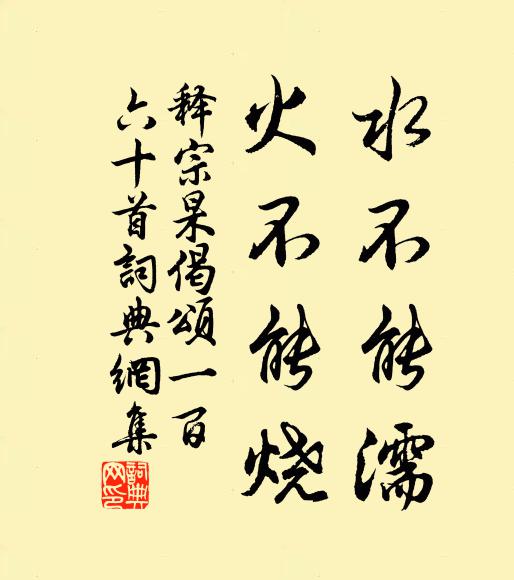 水不能濡
火不能烧
释宗杲偈颂一百
六十首詞典網集
詞典网印